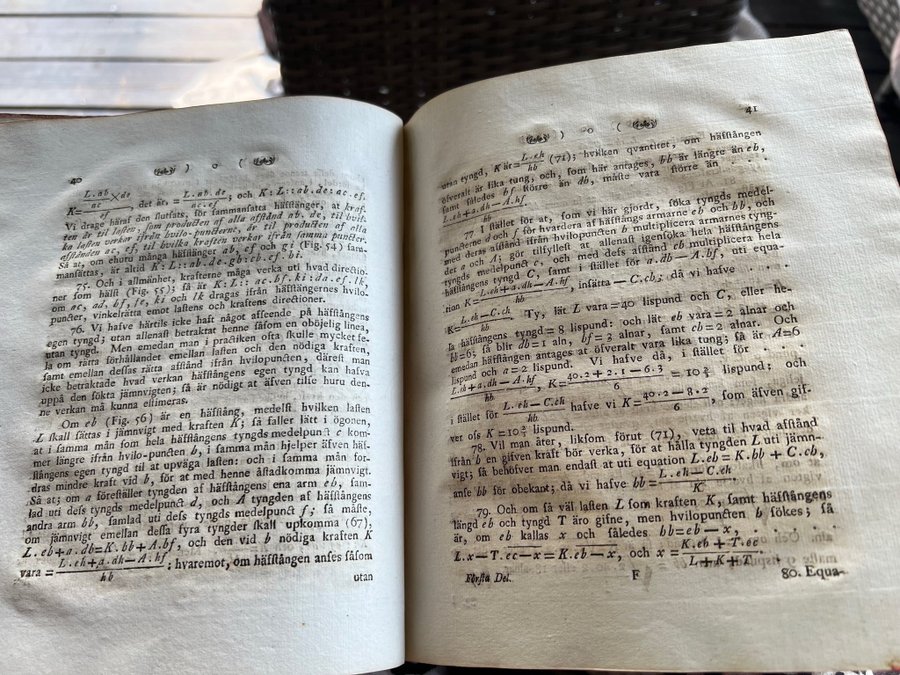 40 ) o (
K = L.ab/ac × de/ef, det är, = L.ab.de/ac.ef; och K:L::ab.de:ac.ef.
Vi drage häraf den slutsats, för sammansatta häfstänger, at kraf-
ten är til lasten, som producten af alla afstånd ab, de, til hvil-
ka lasten verkar ifrån hvilo-puncterne, är til producten af alla
afstånden ac, ef, til hvilka kraften verkar ifrån samma puncter.
Så at, om ehuru många häfstänger ab, ef och gi (Fig. 54) sam-
mansättas, är altid K:L::ab.de.gh:cb.ef.bi.
75. Och i allmänhet, krafterne måga verka uti hvad directio-
ner som hälst (Fig. 55); så är K:L::ac.bf.ki:da.ef.lk,
om ac, ad, bf, fe, ki och lk dragas ifrån häfstångernes hvilo-
puncter, vinkelrätta emot lastens och kraftens directioner.
76. Vi hafve härtils icke haft något afseende på häfstångens
egen tyngd; utan allenast betraktat henne såsom en oböjelig linea,
utan tyngd. Men emedan man i practiken ofta skulle mycket fe-
la om rätta förhållandet emellan lasten och den nödiga kraften,
samt emellan dessas rätta afstånd ifrån hvilopuncten, därest man
icke betraktade hvad verkan häfstångens egen tyngd kan hafva
uppå den sökta jämnvigten; så är nödigt at äfven tilse huru den-
ne verkan må kunna estimeras.
Om eb (Fig. 56) är en häfstång, medelst hvilken lasten
L skall sättas i jämnvigt med kraften K; så faller lätt i ögonen,
at i samma mån som hela häfstångens tyngds medelpunct c kom-
mer längre ifrån hvilo-punkten b, i samma mån hjelper äfven häf-
stångens egen tyngd til at upväga lasten: och i samma mån for-
dras mindre kraft vid b, för at med henne åstadkomma jämnvigt.
Så at; om a föreställer tyngden af häfstångens ena arm eb, sam-
lad uti dess tyngds medelpunct d, och A tyngden af häfstångens
andra arm bb, samlad uti dess tyngds medelpunct f; så måste,
om jämnvigt emellan dessa fyra tyngder skall upkomma (67),
L.eb+a.db=K.bb+A.bf, och den vid b nödiga kraften K
vara = L.eh+a.dh—A.hf/hb; hvaremot, om häfstången anses såsom
utan
) o ( 41
utan tyngd, K är = L.eh/hb (71); hvilken qvantitet, om häfstången
öfveralt är lika tung, och, som här antages, bb är längre än eb,
samt således bf större än db, måste vara större än . . . .
L.eh+a.dh—A.hf/hb.
77. I stället för at, som vi här gjordt, söka tyngds medel-
puncterne d och f för hvardera af häfstångs armarne eb och bb, och
med deras afstånd ifrån hvilopuncten b multiplicera armarnes tyng-
der a och A; gör tilfyllest at allenast igensöka hela häfstångens
tyngds medelpunct c, och med dess afstånd cb multiplicera hela
häfstångens tyngd C, samt i stället för a.db—A.bf, uti equa-
tion K = L.eh+a.dh—A.hf/hb, insätta —C.cb; då vi hafve . . . .
K = L.eh—C.ch/hb. Ty, låt L vara = 40 lispund och C, eller he-
la häfstångens tyngd = 8 lispund: och låt eb vara = 2 alnar och
bb = 6; så blir db = 1 aln, bf = 3 alnar, samt cb = 2 alnar. Och
emedan häfstången antages at öfveralt vara lika tung; så är A = 6
lispund och a = 2 lispund. Vi hafve då, i stället för . . . .
L.eh+a.dh—A.hf/hb, K = 40.2+2.1—6.3/6 = 10 2/3 lispund; och
i stället för L.eh—C.ch/hb hafve vi K = 40.2—8.2/6, som äfven gif-
ver oss K = 10 2/3 lispund.
78. Vil man åter, liksom förut (71), veta til hvad afstånd
ifrån b en gifven kraft bör verka, för at hålla tyngden L uti jämn-
vigt; så behöfver man endast at uti equation L.eb=K.bb+C.cb,
anse bb för obekant; då vi hafve bb = L.eh—C.ch/K.
79. Och om så väl lasten L som kraften K, samt häfstångens
längd eb och tyngd T äro gifne, men hvilopuncten b sökes; så
är, om eb kallas x och således bb=eb—x, . . . . .
L.x—T.ec—x=K.eb—x, och x = K.eb+T.ec/L+K+T.
Första Del. F 80. Equa-